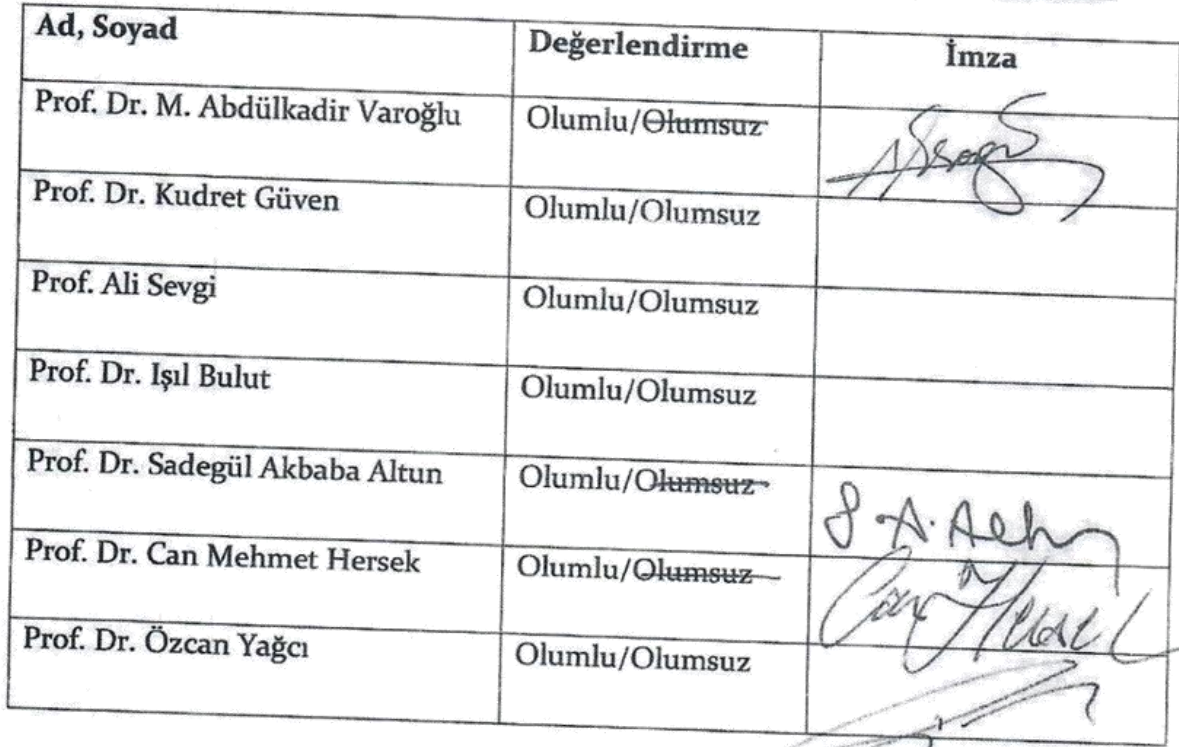 Ad, Soyad Değerlendirme İmza
Prof. Dr. M. Abdülkadir Varoğlu Olumlu/Olumsuz
Prof. Dr. Kudret Güven Olumlu/Olumsuz
Prof. Ali Sevgi Olumlu/Olumsuz
Prof. Dr. Işıl Bulut Olumlu/Olumsuz
Prof. Dr. Sadegül Akbaba Altun Olumlu/Olumsuz
S. A. Altun
Prof. Dr. Can Mehmet Hersek Olumlu/Olumsuz
Can Hersek
Prof. Dr. Özcan Yağcı Olumlu/Olumsuz